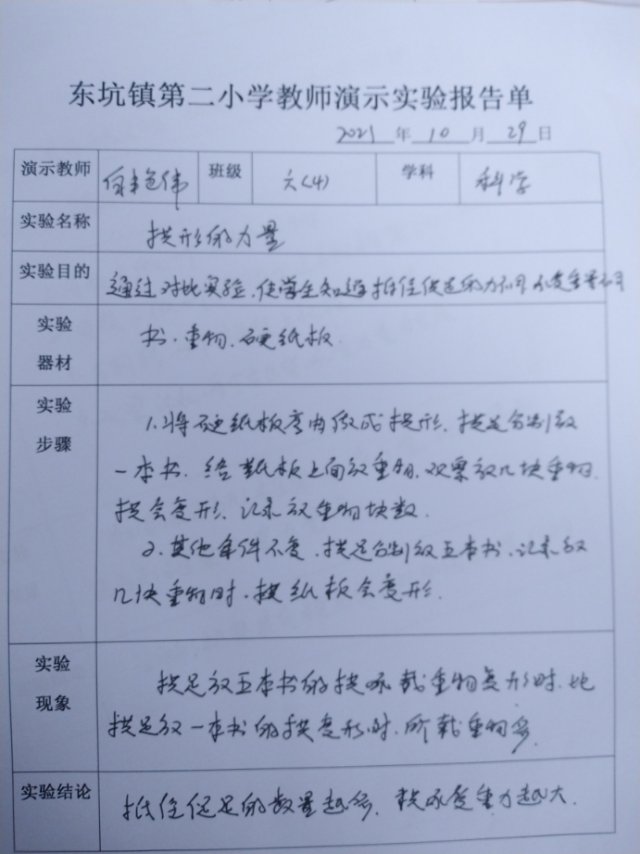 东坑镇第二小学教师演示实验报告单
2021 年 10 月 29 日
演示教师 伟 班级 六(4) 学科 科学
实验名称 拱形的力量
实验目的 通过对比实验,使学生知道抵住拱足的力不同 承受重量不同
实验
器材
书、重物、硬纸板
实验
步骤
1.将硬纸板弯曲做成拱形,拱足分别放
一本书,给纸板上面放重物,观察放几块重物,
拱会变形,记录放重物块数.
2.其他条件不变,拱足分别放五本书,记录放
几块重物时,拱纸板会变形.
实验
现象
拱足放五本书的拱承载重物变形时,比
拱足放一本书的拱变形时,所载重物多.
实验结论 抵住拱足的数量越多,拱承受重力越大.